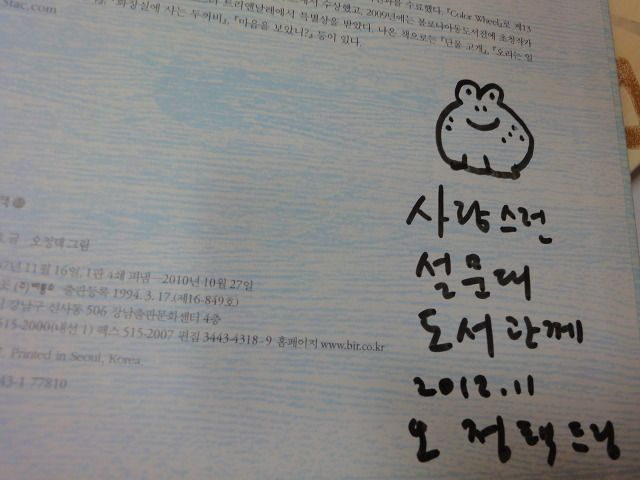 Stac.com
수료했다. 『Color Wheel』로 제13
수상했고, 2009년에는 볼로냐아동도서전에 초청작가
트리엔날레에서 특별상을 받았다. 나온 책으로는 『단물 고개』, 『오라는 일
『화장실에 사는 두꺼비』, 『마음을 보았니?』 등이 있다.
글 오정택 그림
11월 16일, 1판 4쇄 펴냄 2010년 10월 27일
출판등록 1994. 3. 17.(제16-849호)
강남구 신사동 506 강남출판문화센터 4층
515-2000(내선 1) 팩스 515-2007 편집 3443-4318~9 홈페이지 www.bir.co.kr
Printed in Seoul, Korea.
43-1 77810
사랑스런
설문대
도서관께
2012.11
오정택드림